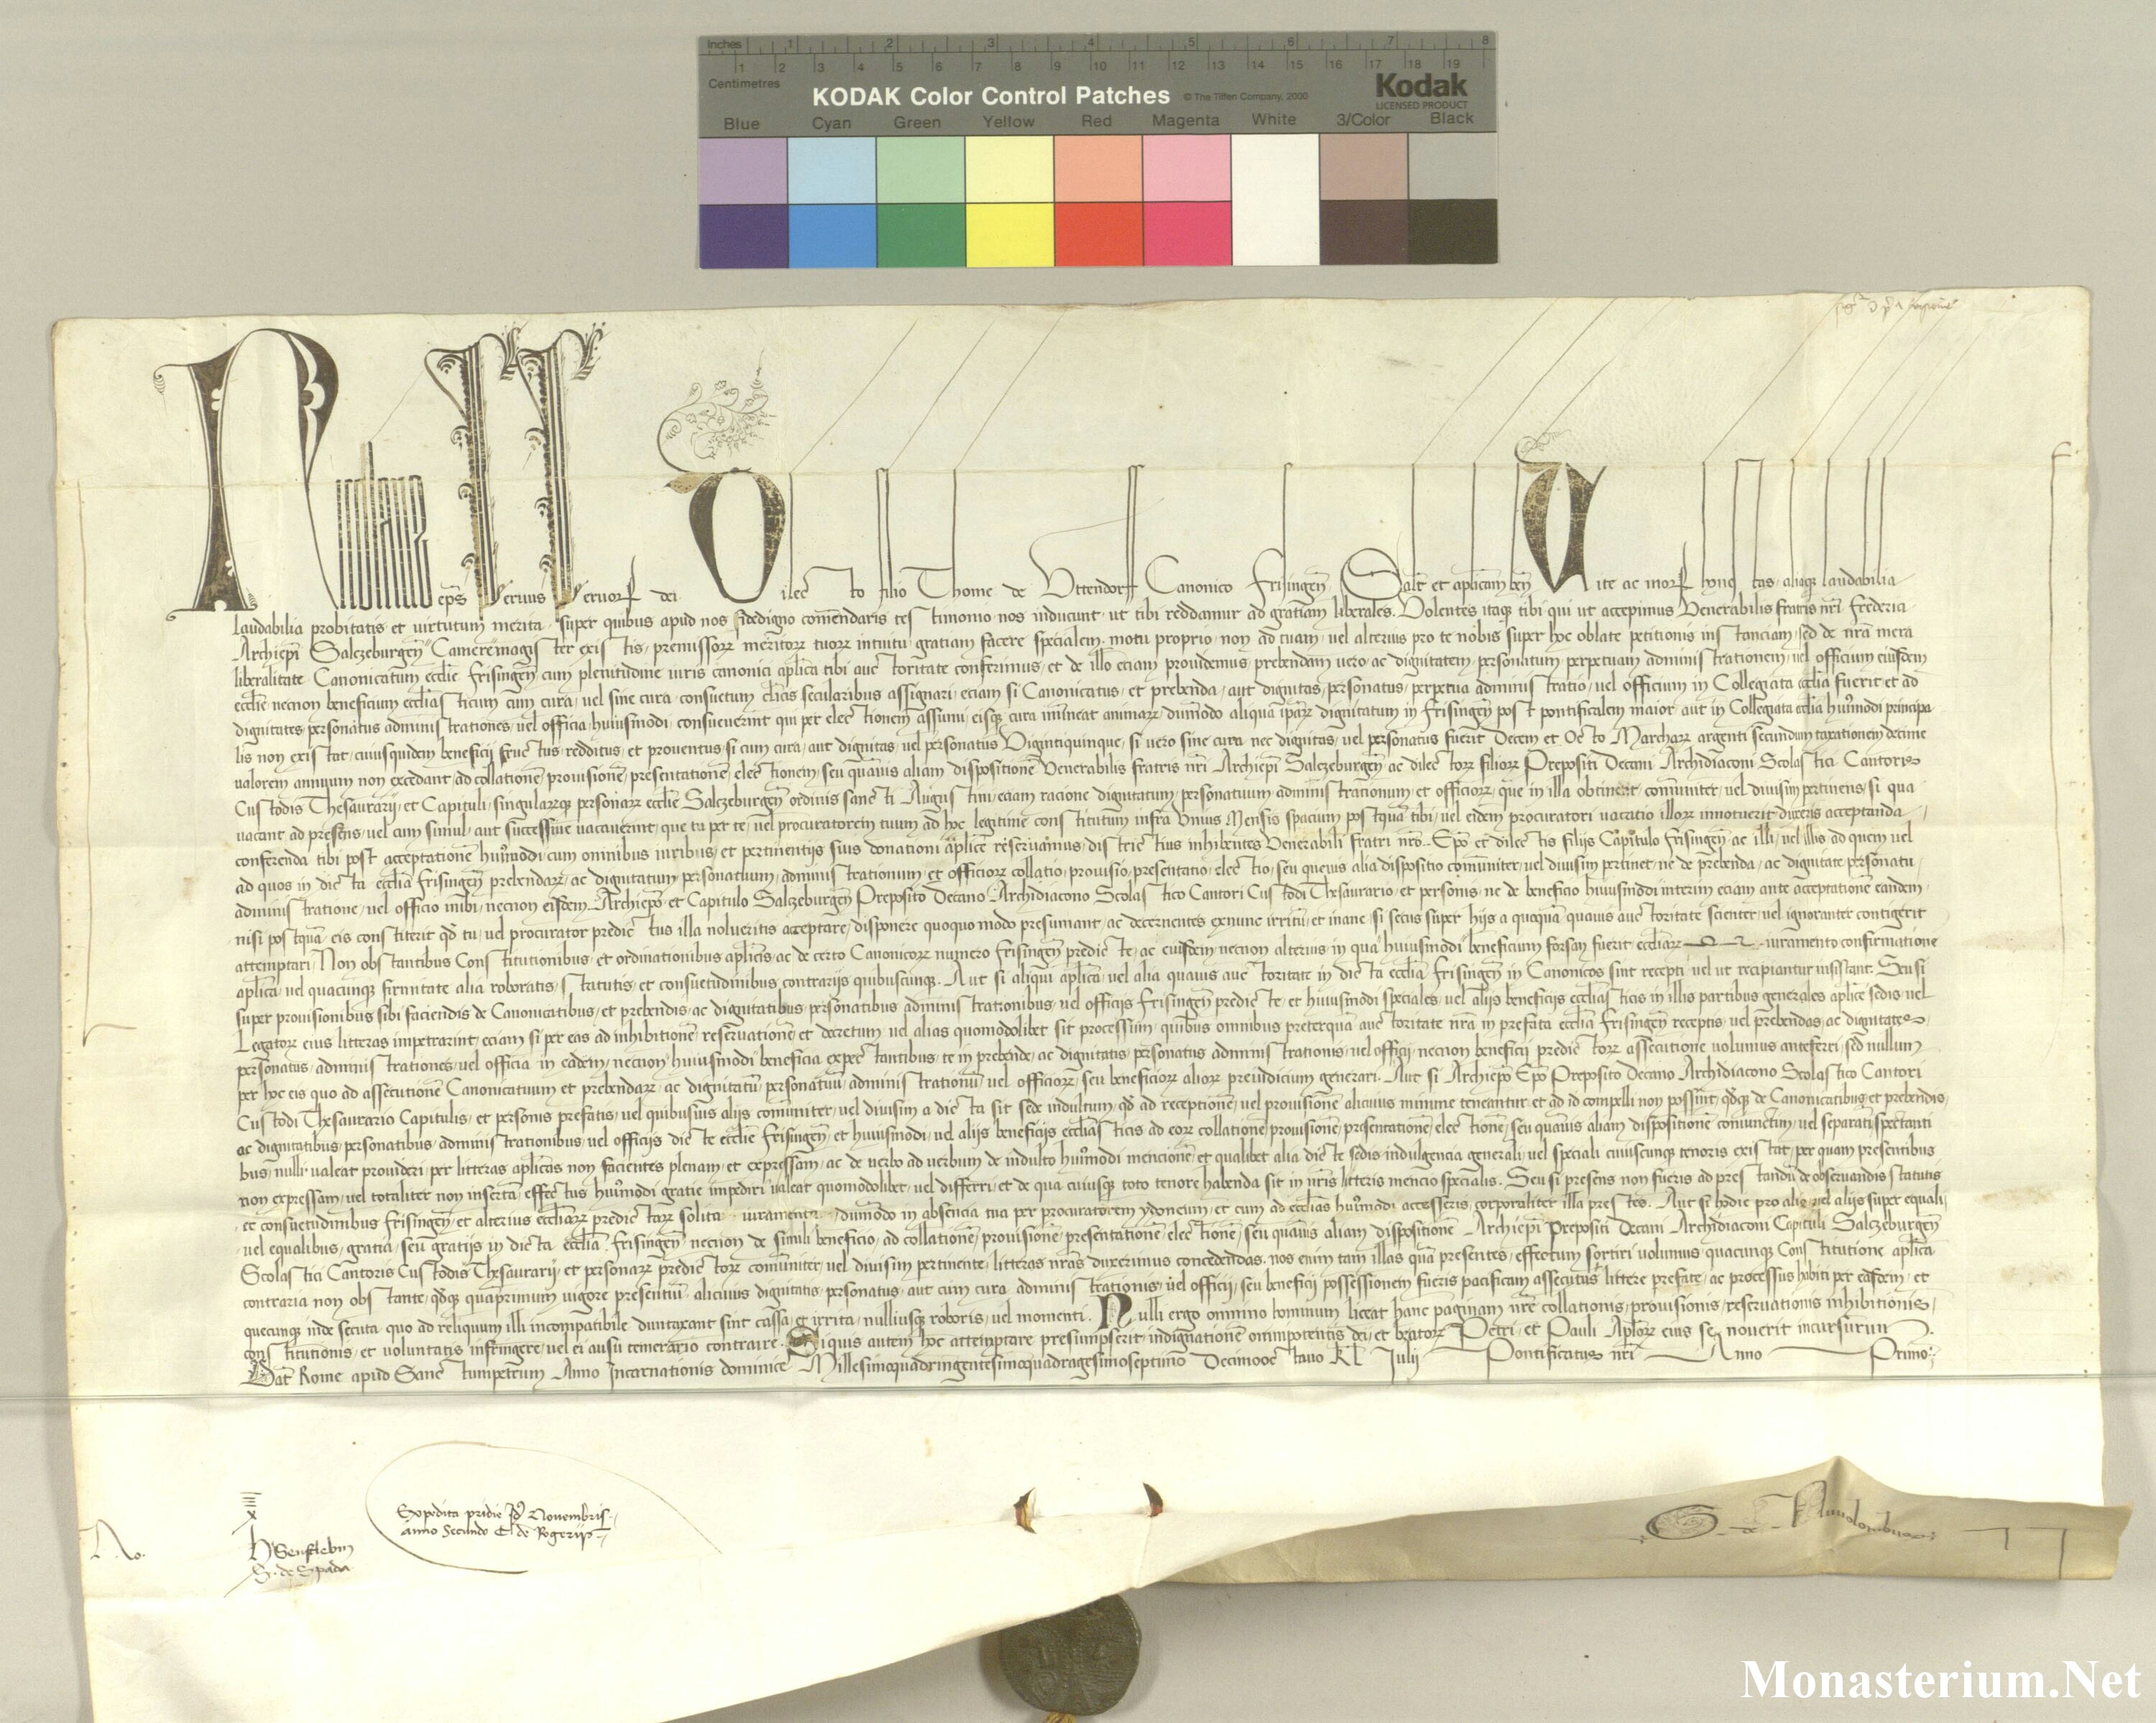 Inches 1 2 3 4 5 6 7 8
1 2 3 4 5 6 7 8 9 10 11 12 13 14 15 16 17 18 19
Centimetres
KODAK Color Control Patches © The Tiffen Company, 2000 Kodak
LICENSED PRODUCT
Blue Cyan Green Yellow Red Magenta White 3/Color Black
Nicolaus ep̄s Seruus Seruoꝝ dei Dilecto filio Thome de Vttendorff Canonico Frisingen̄ Salt̄ et aplicam ben̄ Uite ac moꝝ honestas aliaque laudabilia
laudabilia probitatis et virtutum merita super quibus apud nos fidedigno comendaris testimonio nos inducunt ut tibi reddamur ad gratiam liberales. Volentes itaque tibi qui ut accepimus Venerabilis fratris nr̄i Frederici
Archiep̄i Salczeburgen̄ Camere magister existis premissorꝝ meritorꝝ tuorꝝ intuitu gratiam facere specialem motu proprio non ad tuam uel alterius pro te nobis super hoc oblate petitionis instanciam sed de nr̄a mera
liberalitate Canonicatum ecclie Frisingen̄ cum plenitudine iuris canonici aplica tibi auctoritate conferimus et de illo eciam prouidemus prebendam uero ac dignitatem personatum perpetuam administrationem uel officium eiusdem
ecclie necnon beneficium ecclasticum cum cura uel sine cura consuetum clicis secularibus assignari eciam si Canonicatus et prebenda aut dignitas personatus perpetua administratio uel officium in Collegiata ecclia fuerit et ad
dignitates personatus administrationes uel officia huiusmodi consueuerint qui per electionem assumi eisque cura imineat animarꝝ dumodo aliqua iparꝝ dignitatum in Frisingen̄ post pontificalem maior aut in Collegiata ecclia hmodi principa
lis non existat cuiusquidem beneficij fructus redditus et prouentus si cum cura aut dignitas uel personatus Vigintiquinque si uero sine cura nec dignitas uel personatus fuerit Decem et Octo Marcharꝝ argenti secundum taxationem decime
ualorem annuum non excedant ad collatione prouisione presentatione electionem seu quamuis aliam dispositione Venerabilis fratris nr̄i Archiep̄i Salczeburgen̄ ac dilectorꝝ filiorꝝ Prepositi Decani Archidiaconi Scolastici Cantoris
Custodis Thesaurarij et Capituli singularꝝque personarꝝ ecclie Salczeburgen̄ ordinis sancti Augustini eciam racione dignitatum personatuum administrationum et officiorꝝ que in illa obtinent comuniter uel diuisim pertinens si qua
uacant ad presens uel cum simul aut successiue uacauerint que tu per te uel procuratorem tuum ad hoc legitime constitutum infra Vnius Mensis spacium postqua tibi uel eidem procuratori uacatio illorꝝ innotuerit duxeris acceptanda
conferenda tibi post acceptatione hmodi cum omnibus iuribus et pertinentijs suis donationi aplice reseruamus districtius inhibentes Venerabili fratri nr̄o Ep̄o et dilectis filijs Capitulo Frisingen̄ ac illi uel illis ad quem uel
ad quos in dicta ecclia Frisingen̄ prebendarꝝ ac dignitatum personatuum administrationum et officiorꝝ collatio prouisio presentatio electio seu queuis alia dispositio comuniter uel diuisim pertinet ne de prebenda ac dignitate personatu
administratione uel officio inibi necnon eisdem Archiep̄o et Capitulo Salczeburgen̄ Preposito Decano Archidiacono Scolastico Cantori Custodi Thesaurario et personis ne de beneficio huiusmodi interim eciam ante acceptatione eandem
nisi postqua eis constiterit qd tu uel procurator predictus illa nolueritis acceptare disponere quoquo modo presumant ac decernentes exnunc irritu et inane si secus super hijs a quoqua quauis auctoritate scienter uel ignoranter contigerit
attemptari Non obstantibus Constitutionibus et ordinationibus aplicis ac de certo Canonicorꝝ numero Frisingen̄ predicte ac eiusdem necnon alterius in qua huiusmodi beneficium forsan fuerit eccliarꝝ iuramento confirmatione
aplica uel quacunque firmitate alia roboratis statutis et consuetudinibus contrarijs quibuscunque. Aut si aliqui aplica uel alia quauis auctoritate in dicta ecclia Frisingen̄ in Canonicos sint recepti uel ut recipiantur insistant. Seu si
super prouisionibus sibi faciendis de Canonicatibus et prebendis ac dignitatibus personatibus administrationibus uel officijs Frisingen̄ predicte et huiusmodi speciales uel alijs beneficijs ecclasticis in illis partibus generales aplice sedis uel
Legatorꝝ eius litteras impetrarint eciam si per eas ad inhibitione reseruatione et decretum uel alias quomodolibet sit processum quibus omnibus preterqua auctoritate nr̄a in prefata ecclia Frisingen̄ receptis uel prebendas ac dignitates
personatus administrationes uel officia in eadem necnon huiusmodi beneficia expectantibus te in prebende ac dignitatis personatus administrationis uel officij necnon beneficij predictorꝝ assecutione uolumus anteferri sed nullum
per hoc eis quo ad assecutione Canonicatuum et prebendarꝝ ac dignitatu personatuu administrationu uel officiorꝝ seu beneficiorꝝ aliorꝝ preiudicium generari. Aut si Archiep̄o Ep̄o Preposito Decano Archidiacono Scolastico Cantori
Custodi Thesaurario Capitulis et personis prefatis uel quibusuis alijs comuniter uel diuisim a dicta sit sede indultum qd ad receptione uel prouisione alicuius minime teneantur et ad id compelli non possint qdque de Canonicatibus et prebendis
ac dignitatibus personatibus administrationibus uel officijs dicte ecclie Frisingen̄ et huiusmodi uel alijs beneficijs ecclasticis ad eorꝝ collatione prouisione presentatione electione seu quamuis aliam dispositione coniunctim uel separatim spectanti
bus nulli ualeat prouideri per litteras aplicas non facientes plenam et expressam ac de uerbo ad uerbum de indulto hmodi mencione et qualibet alia dicte sedis indulgencia generali uel speciali cuiuscunque tenoris existat per quam presentibus
non expressam uel totaliter non inserta effectus hmodi gratie impediri ualeat quomodolibet uel differri et de qua cuiusque toto tenore habenda sit in nr̄is litteris mencio specialis. Seu si presens non fueris ad prestandu de obseruandis statutis
et consuetudinibus Frisingen̄ et alterius eccliarꝝ predictarꝝ solita iuramenta dumodo in absencia tua per procuratorem ydoneum et cum ad ecclias hmodi accesseris corporaliter illa prestes. Aut si hodie pro alio uel alijs super equali
uel equalibus gratia seu gratijs in dicta ecclia Frisingen̄ necnon de simili beneficio ad collatione prouisione presentatione electione seu quamuis aliam dispositione Archiep̄i Prepositi Decani Archidiaconi Capituli Salczeburgen̄
Scolastici Cantoris Custodis Thesaurarij et personarꝝ predictorꝝ comuniter uel diuisim pertinente litteras nr̄as duxerimus concedendas. nos enim tam illas qua presentes effectum sortiri uolumus quacunque Constitutione aplica
contraria non obstante qdque quaprimum uigore presentiu alicuius dignitatis personatus aut cum cura administrationis uel officij seu beneficij possessionem fueris pacificam assecutus littere prefate ac processus habiti per easdem et
quecunque inde secuta quo ad reliquum illi incompatibile duntaxant sint cassa et irrita nulliusque roboris uel momenti. Nulli ergo omnino hominum liceat hanc paginam nr̄e collationis prouisionis reseruationis inhibitionis
constitutionis et voluntatis infringere uel ei ausu temerario contraire. Siquis autem hoc attemptare presumpserit indignatione omnipotentis dei et beatorꝝ Petri et Pauli Aplorꝝ eius se nouerit incursurum.
Dat̄ Rome apud Sanctumpetrum Anno Incarnationis dominice Millesimoquadringentesimoquadragesimoseptimo Decimooctauo Kl Julij Pontificatus nr̄i Anno Primo
Expedita pridie Id Nouembris
anno Secundo C de Rogerijs
x
H Senftlebin
S. de Spada
No.
Monasterium.Net